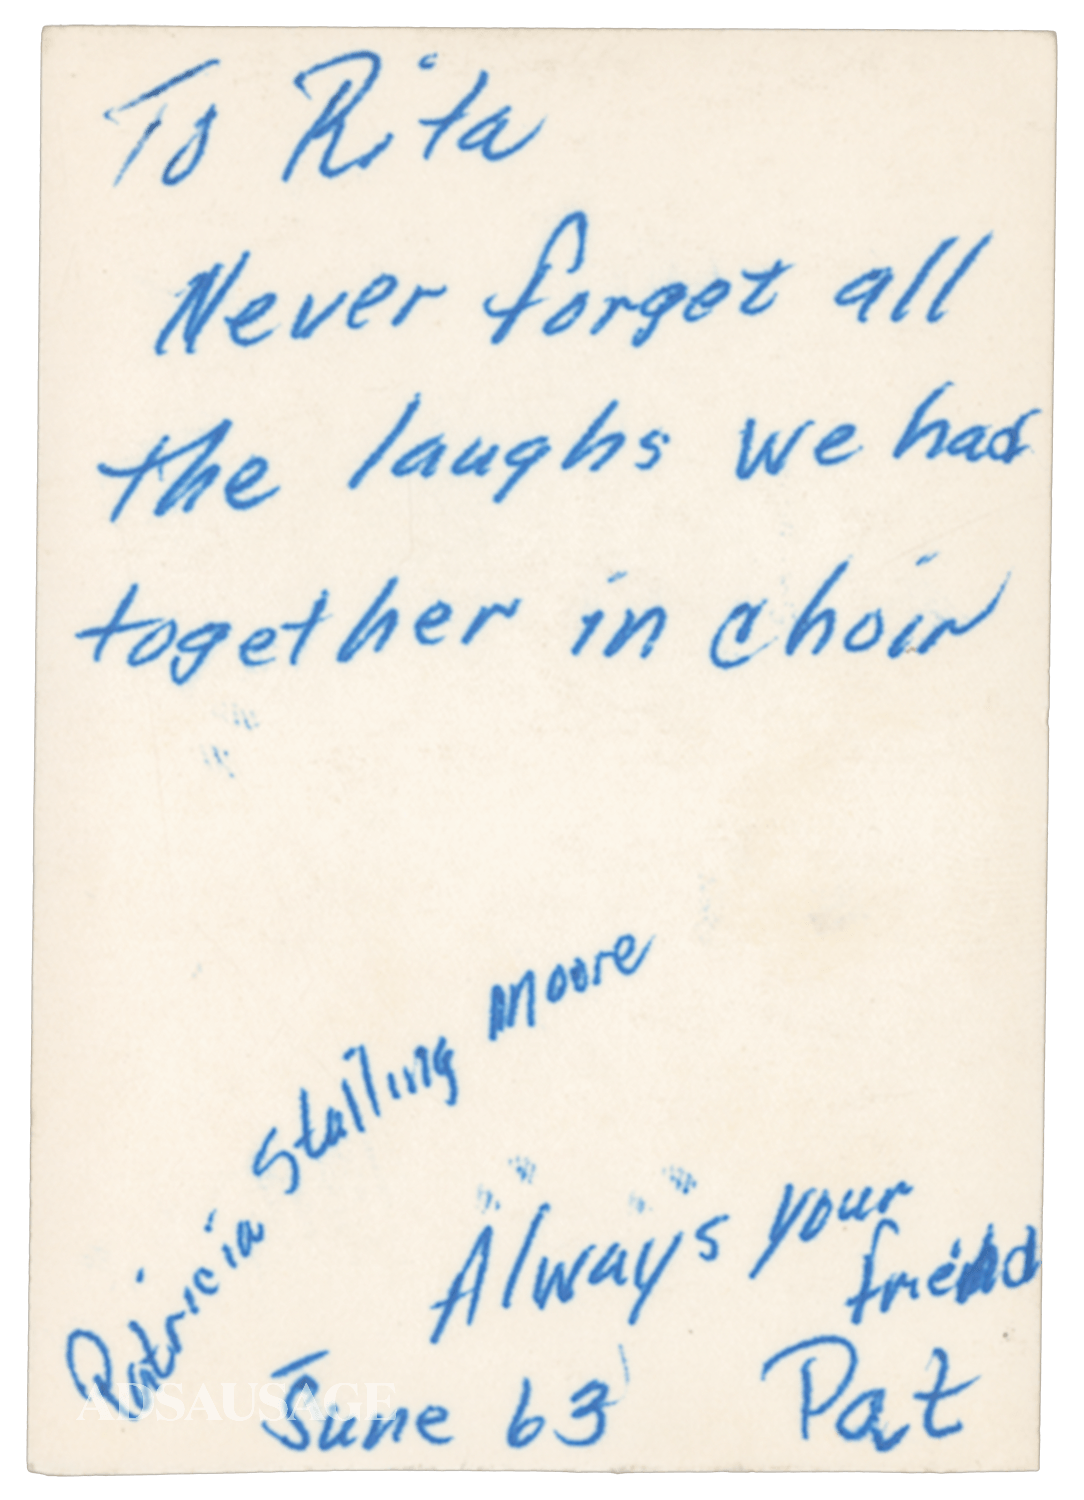 To Rita
Never forget all
the laughs we had
together in choir
Patricia Stalling Moore
Always your
friend
June 63
Pat
ADSAUSAGE